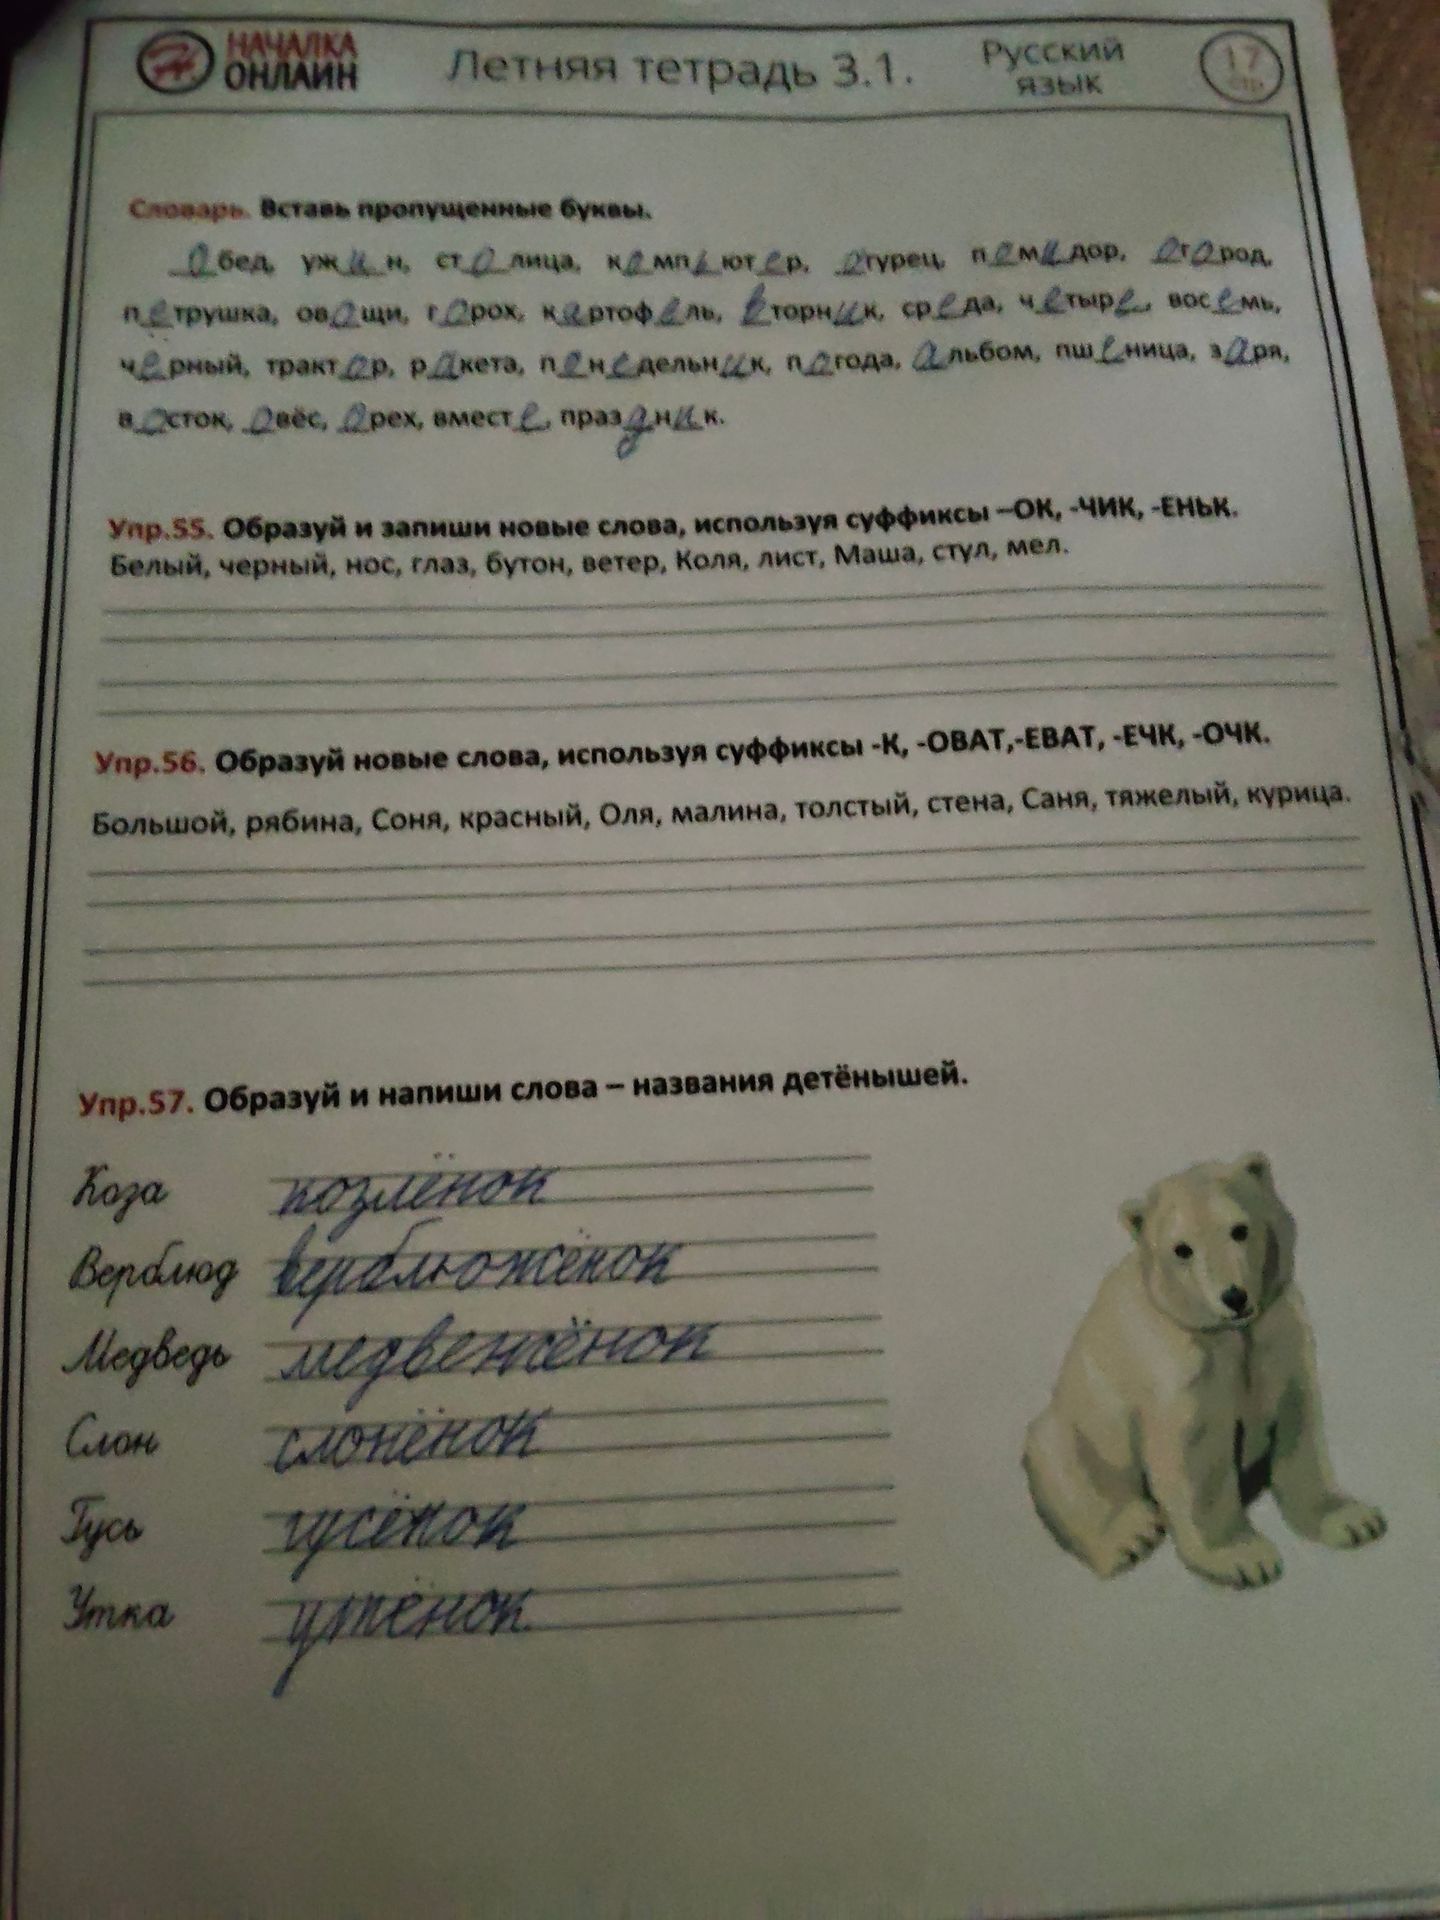 НАЧАЛКА
ОНЛАЙН
Летняя тетрадь 3.1.
Русский
язык
17
стр
Словарь. Вставь пропущенные буквы.
обед, ужин, столица, компьютер, огурец, помидор, огород,
петрушка, овощи, горох, картофель, вторник, среда, четыре, восемь,
чёрный, трактор, ракета, понедельник, погода, альбом, пшеница, заря,
восток, овёс, орех, вместе, праздник.
Упр.55. Образуй и запиши новые слова, используя суффиксы –ОК, -ЧИК, -ЕНЬК.
Белый, черный, нос, глаз, бутон, ветер, Коля, лист, Маша, стул, мел.
Упр.56. Образуй новые слова, используя суффиксы -К, -ОВАТ,-ЕВАТ, -ЕЧК, -ОЧК.
Большой, рябина, Соня, красный, Оля, малина, толстый, стена, Саня, тяжелый, курица.
Упр.57. Образуй и напиши слова – названия детёнышей.
Коза козлёнок
Верблюд верблюжёнок
Медведь медвежёнок
Слон слонёнок
Гусь гусёнок
Утка утёнок